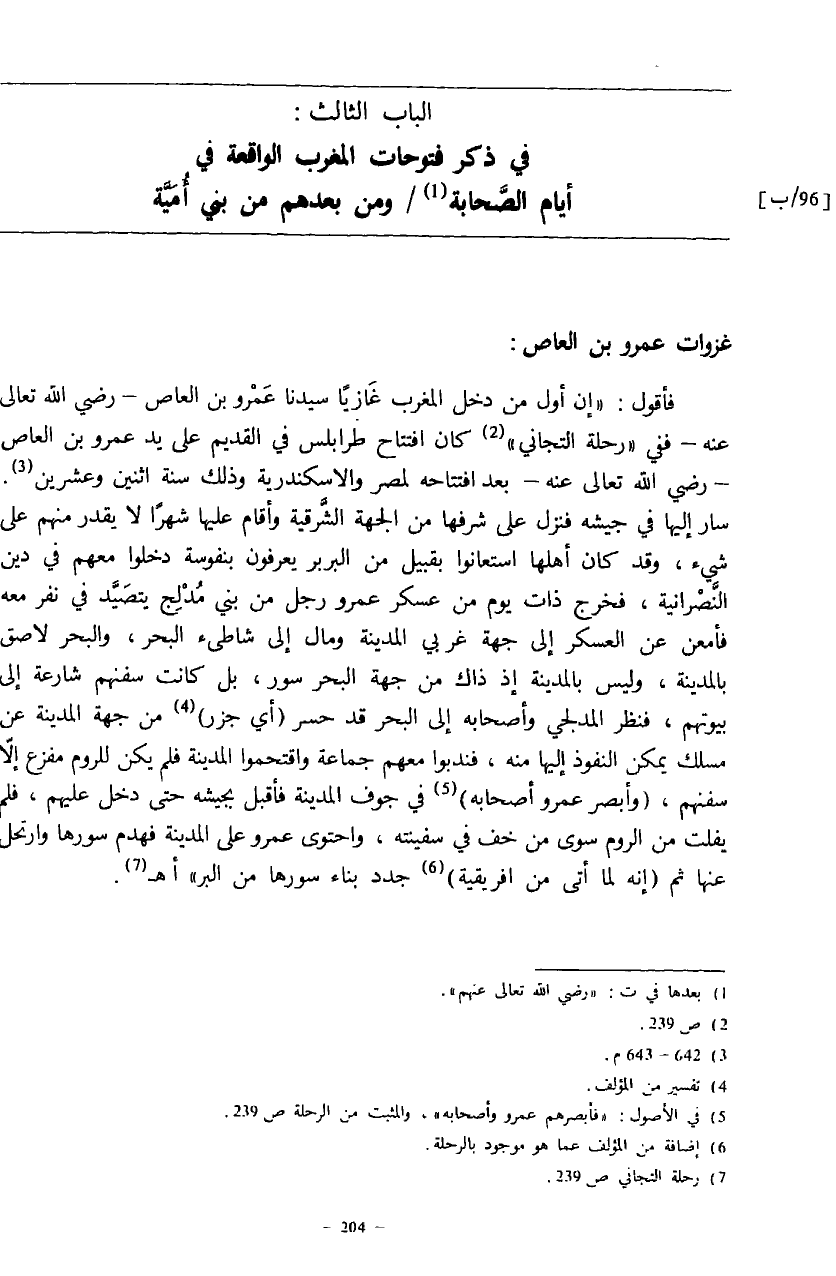 الباب الثالث :
في ذكر فتوحات المغرب الواقعة في
أيام الصَّحابة(1) / ومن بعدهم من بني أُمَيَّة
[96/ب]
غزوات عمرو بن العاص :
فأقول : «إن أول من دخل المغرب غَازيًا سيدنا عَمْرو بن العاص – رضي الله تعالى
عنه – في «رحلة التجاني»(2) كان افتتاح طرابلس في القديم على يد عمرو بن العاص
– رضي الله تعالى عنه – بعد افتتاحه لمصر والاسكندرية وذلك سنة اثنين وعشرين(3).
سار إليها في جيشه فنزل على شرفها من الجهة الشَّرقية وأقام عليها شهرًا لا يقدر منهم على
شيء ، وقد كان أهلها استعانوا بقبيل من البربر يعرفون بنفوسة دخلوا معهم في دين
النَّصْرانية ، فخرج ذات يوم من عسكر عمرو رجل من بني مُدْلِج يتصَيَّد في نفر معه
فأمعن عن العسكر إلى جهة غربي المدينة ومال إلى شاطىء البحر ، والبحر لاصق
بالمدينة ، وليس بالمدينة إذ ذاك من جهة البحر سور ، بل كانت سفنهم شارعة إلى
بيوتهم ، فنظر المدلجي وأصحابه إلى البحر قد حسر (أي جزر)(4) من جهة المدينة عن
مسلك يمكن النفوذ إليها منه ، فندبوا معهم جماعة واقتحموا المدينة فلم يكن للروم مفزع إلّا
سفنهم ، (وأبصر عمرو أصحابه)(5) في جوف المدينة فأقبل بجيشه حتى دخل عليهم ، فلم
يفلت من الروم سوى من خف في سفينته ، واحتوى عمرو على المدينة فهدم سورها وارتحل
عنها ثم (إنه لما أتى من افريقية)(6) جدد بناء سورها من البر» أ هـ(7).
1) بعدها في ت : «رضي الله تعالى عنهم».
2) ص 239.
3) 642 – 643 م.
4) تفسير من المؤلف.
5) في الأصول : «فأبصرهم عمرو وأصحابه» ، والمثبت من الرحلة ص 239.
6) إضافة من المؤلف عما هو موجود بالرحلة.
7) رحلة التجاني ص 239.
– 204 –